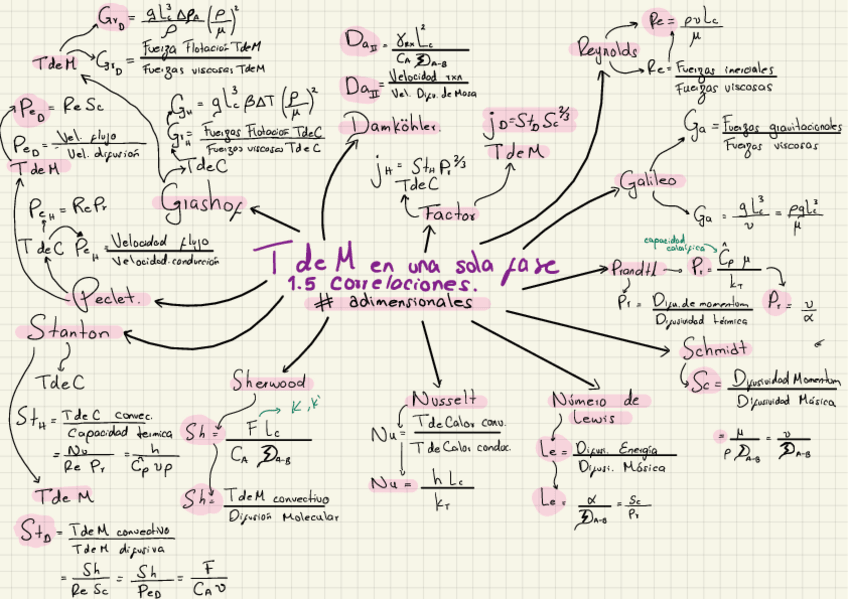 T de M en una sola fase
1.5 Correlaciones.
# adimensionales
Grashof
T de M
Gr_D = gL_c³ Δρ_A / ρ (ρ/μ)²
Gr_D = Fuerza Flotación TdeM / Fuerzas viscosas TdeM
TdeC
G_H = gL_c³ βΔT (ρ/μ)²
G_H = Fuerzas Flotación TdeC / Fuerzas viscosas TdeC
Peclet.
T de M
Pe_D = Re Sc
Pe_D = Vel. flujo / Vel. difusión
T de C
Pe_H = Re Pr
Pe_H = Velocidad flujo / Velocidad conducción
Stanton
T de C
St_H = T de C convec. / Capacidad termica
= Nu / Re Pr = h / Ĉp υρ
T de M
St_D = T de M convectivo / T de M difusiva
= Sh / Re Sc = Sh / Pe_D = F / C_A υ
Damköhler.
Da_II = γ_rxn L_c² / C_A D_A-B
Da_II = Velocidad rxn / Vel. Difu. de Masa
Factor
j_H = St_H Pr^2/3
T de C
j_D = St_D Sc^2/3
T de M
Reynolds
Re = ρυL_c / μ
Re = Fuerzas inerciales / Fuerzas viscosas
Galileo
Ga = Fuerzas gravitacionales / Fuerzas viscosas
Ga = gL_c³ / υ = ρgL_c³ / μ
Prandtl
capacidad calorífica
Pr = Ĉp μ / k_T
Pr = Difu. de momentum / Difusividad térmica
Pr = υ / α
Schmidt
Sc = Difusividad Momentum / Difusividad Másica
= μ / ρ D_A-B = υ / D_A-B
Sherwood
Sh = F L_c / C_A D_A-B
K, K'
Sh = T de M convectivo / Difusión Molecular
Nusselt
Nu = T de Calor conv. / T de Calor conduc.
Nu = h L_c / k_T
Número de
Lewis
Le = Difusi. Energía / Difusi. Másica
Le = α / D_A-B = Sc / Pr